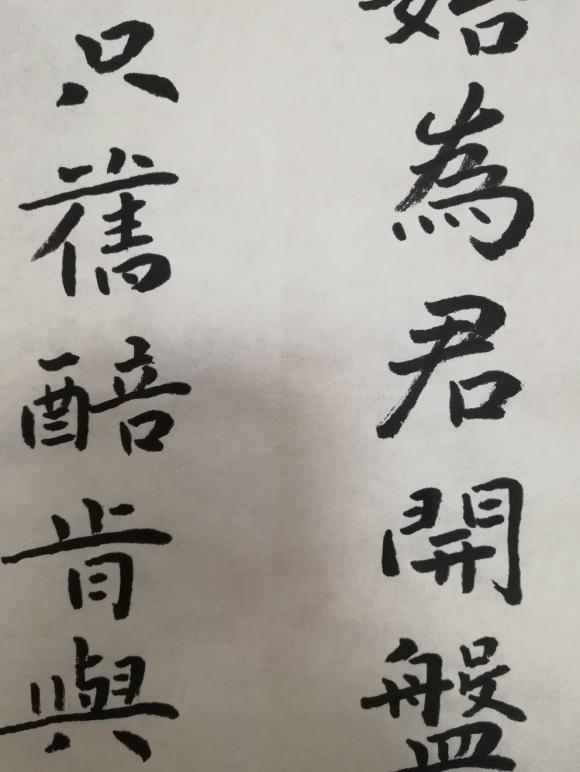 始為君開盤
只舊醅肯與